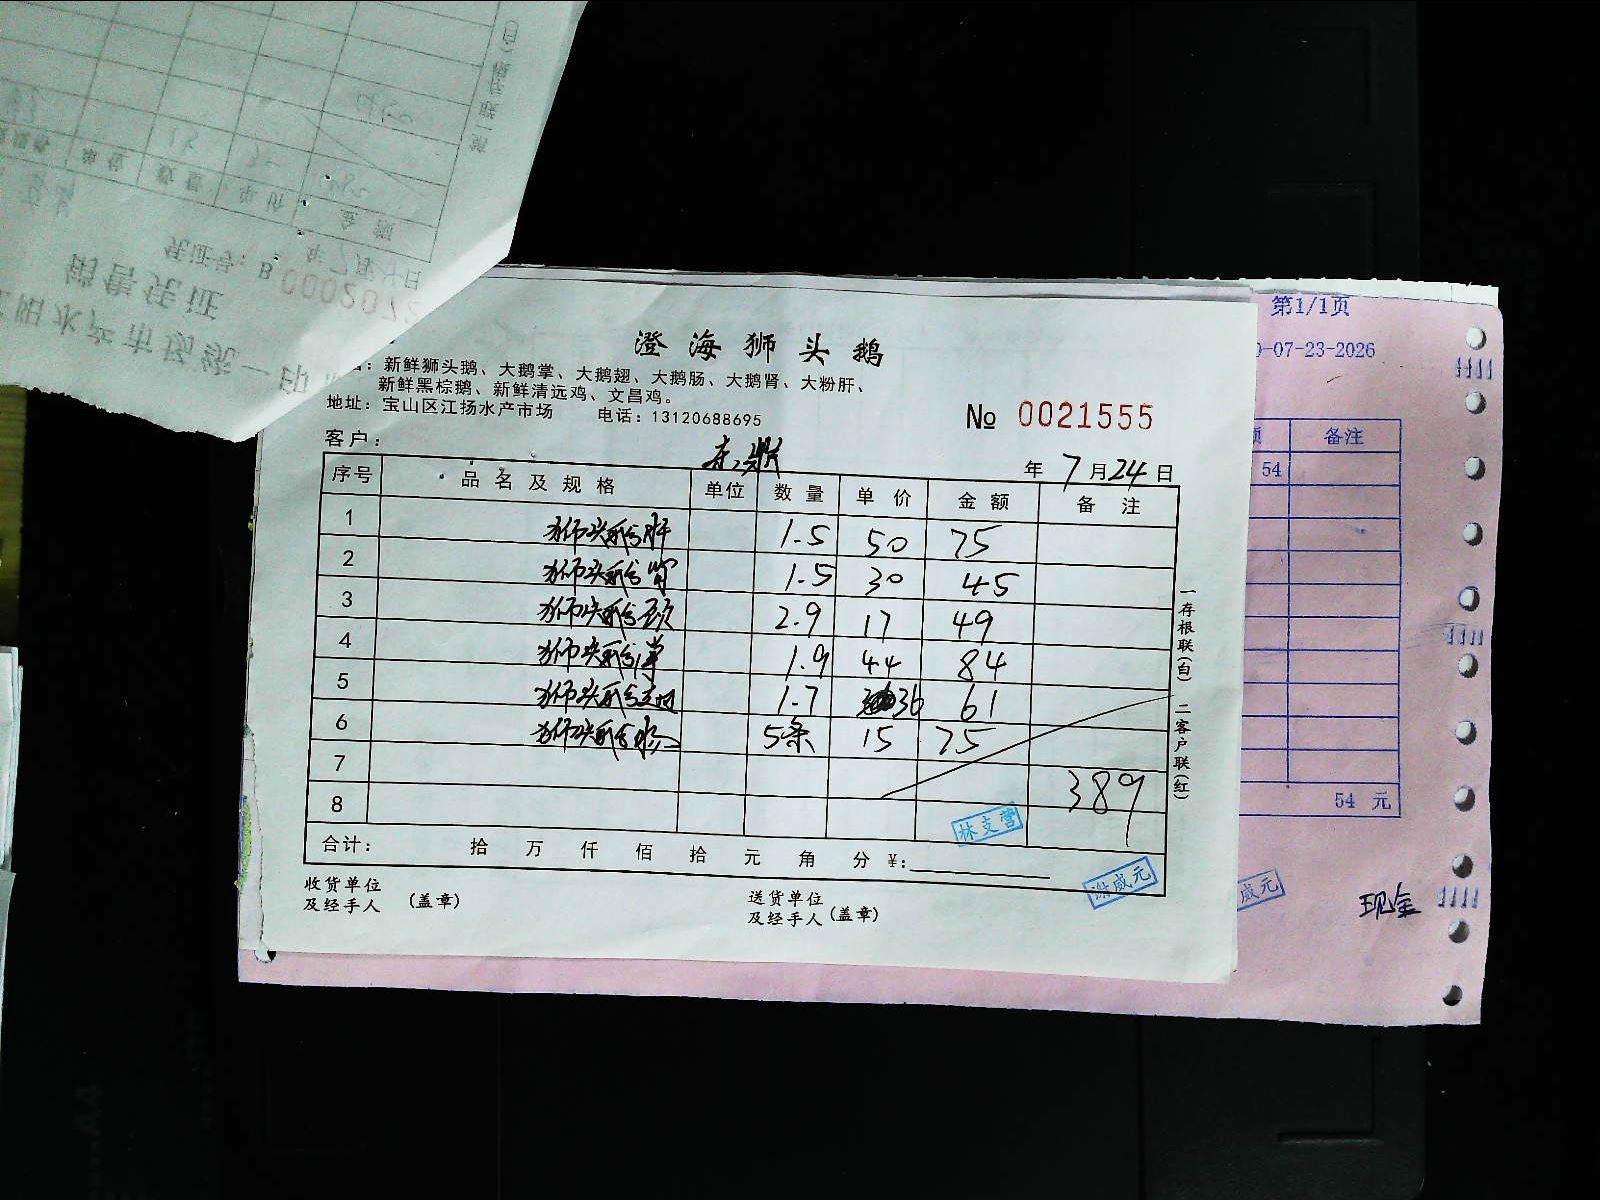 江阳水产市场统一印
销售凭证
凭证号：B 0002072
年7月 日
数量 单价 金额
第1/1页
0-07-23-2026
备注
54
54 元
现金
威元
澄海狮头鹅
：新鲜狮头鹅、大鹅掌、大鹅翅、大鹅肠、大鹅肾、大粉肝、
新鲜黑棕鹅、新鲜清远鸡、文昌鸡。
地址：宝山区江扬水产市场 电话：13120688695
№ 0021555
客户：
年 7 月 24 日
序号 品名及规格 单位 数量 单价 金额 备注
1 狮头鹅肝 1.5 50 75
2 狮头鹅肾 1.5 30 45
3 狮头鹅颈 2.9 17 49
4 狮头鹅掌 1.9 44 84
5 狮头鹅翅 1.7 36 61
6 狮头鹅 5条 15 75
7
389
8
合计： 拾 万 仟 佰 拾 元 角 分 ¥:
林支营
谢威元
收货单位
及经手人 (盖章)
送货单位
及经手人 (盖章)
一存根联(白) 二客户联(红)